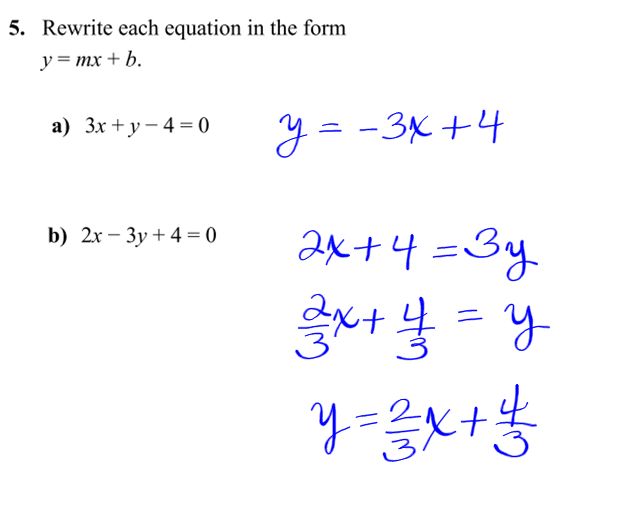 5. Rewrite each equation in the form
y = mx + b.
a) 3x + y − 4 = 0
y = -3x + 4
b) 2x − 3y + 4 = 0
2x + 4 = 3y
2/3 x + 4/3 = y
y = 2/3 x + 4/3